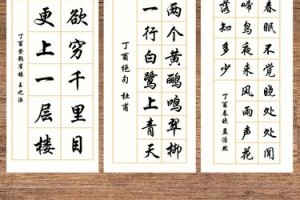 春眠不觉晓处处闻
啼鸟夜来风雨声花
落知多少
丁酉春晓孟浩然
两个黄鹂鸣翠柳
一行白鹭上青天
丁酉绝句 杜甫
欲穷千里目
更上一层楼
丁酉登鹳雀楼 王之涣